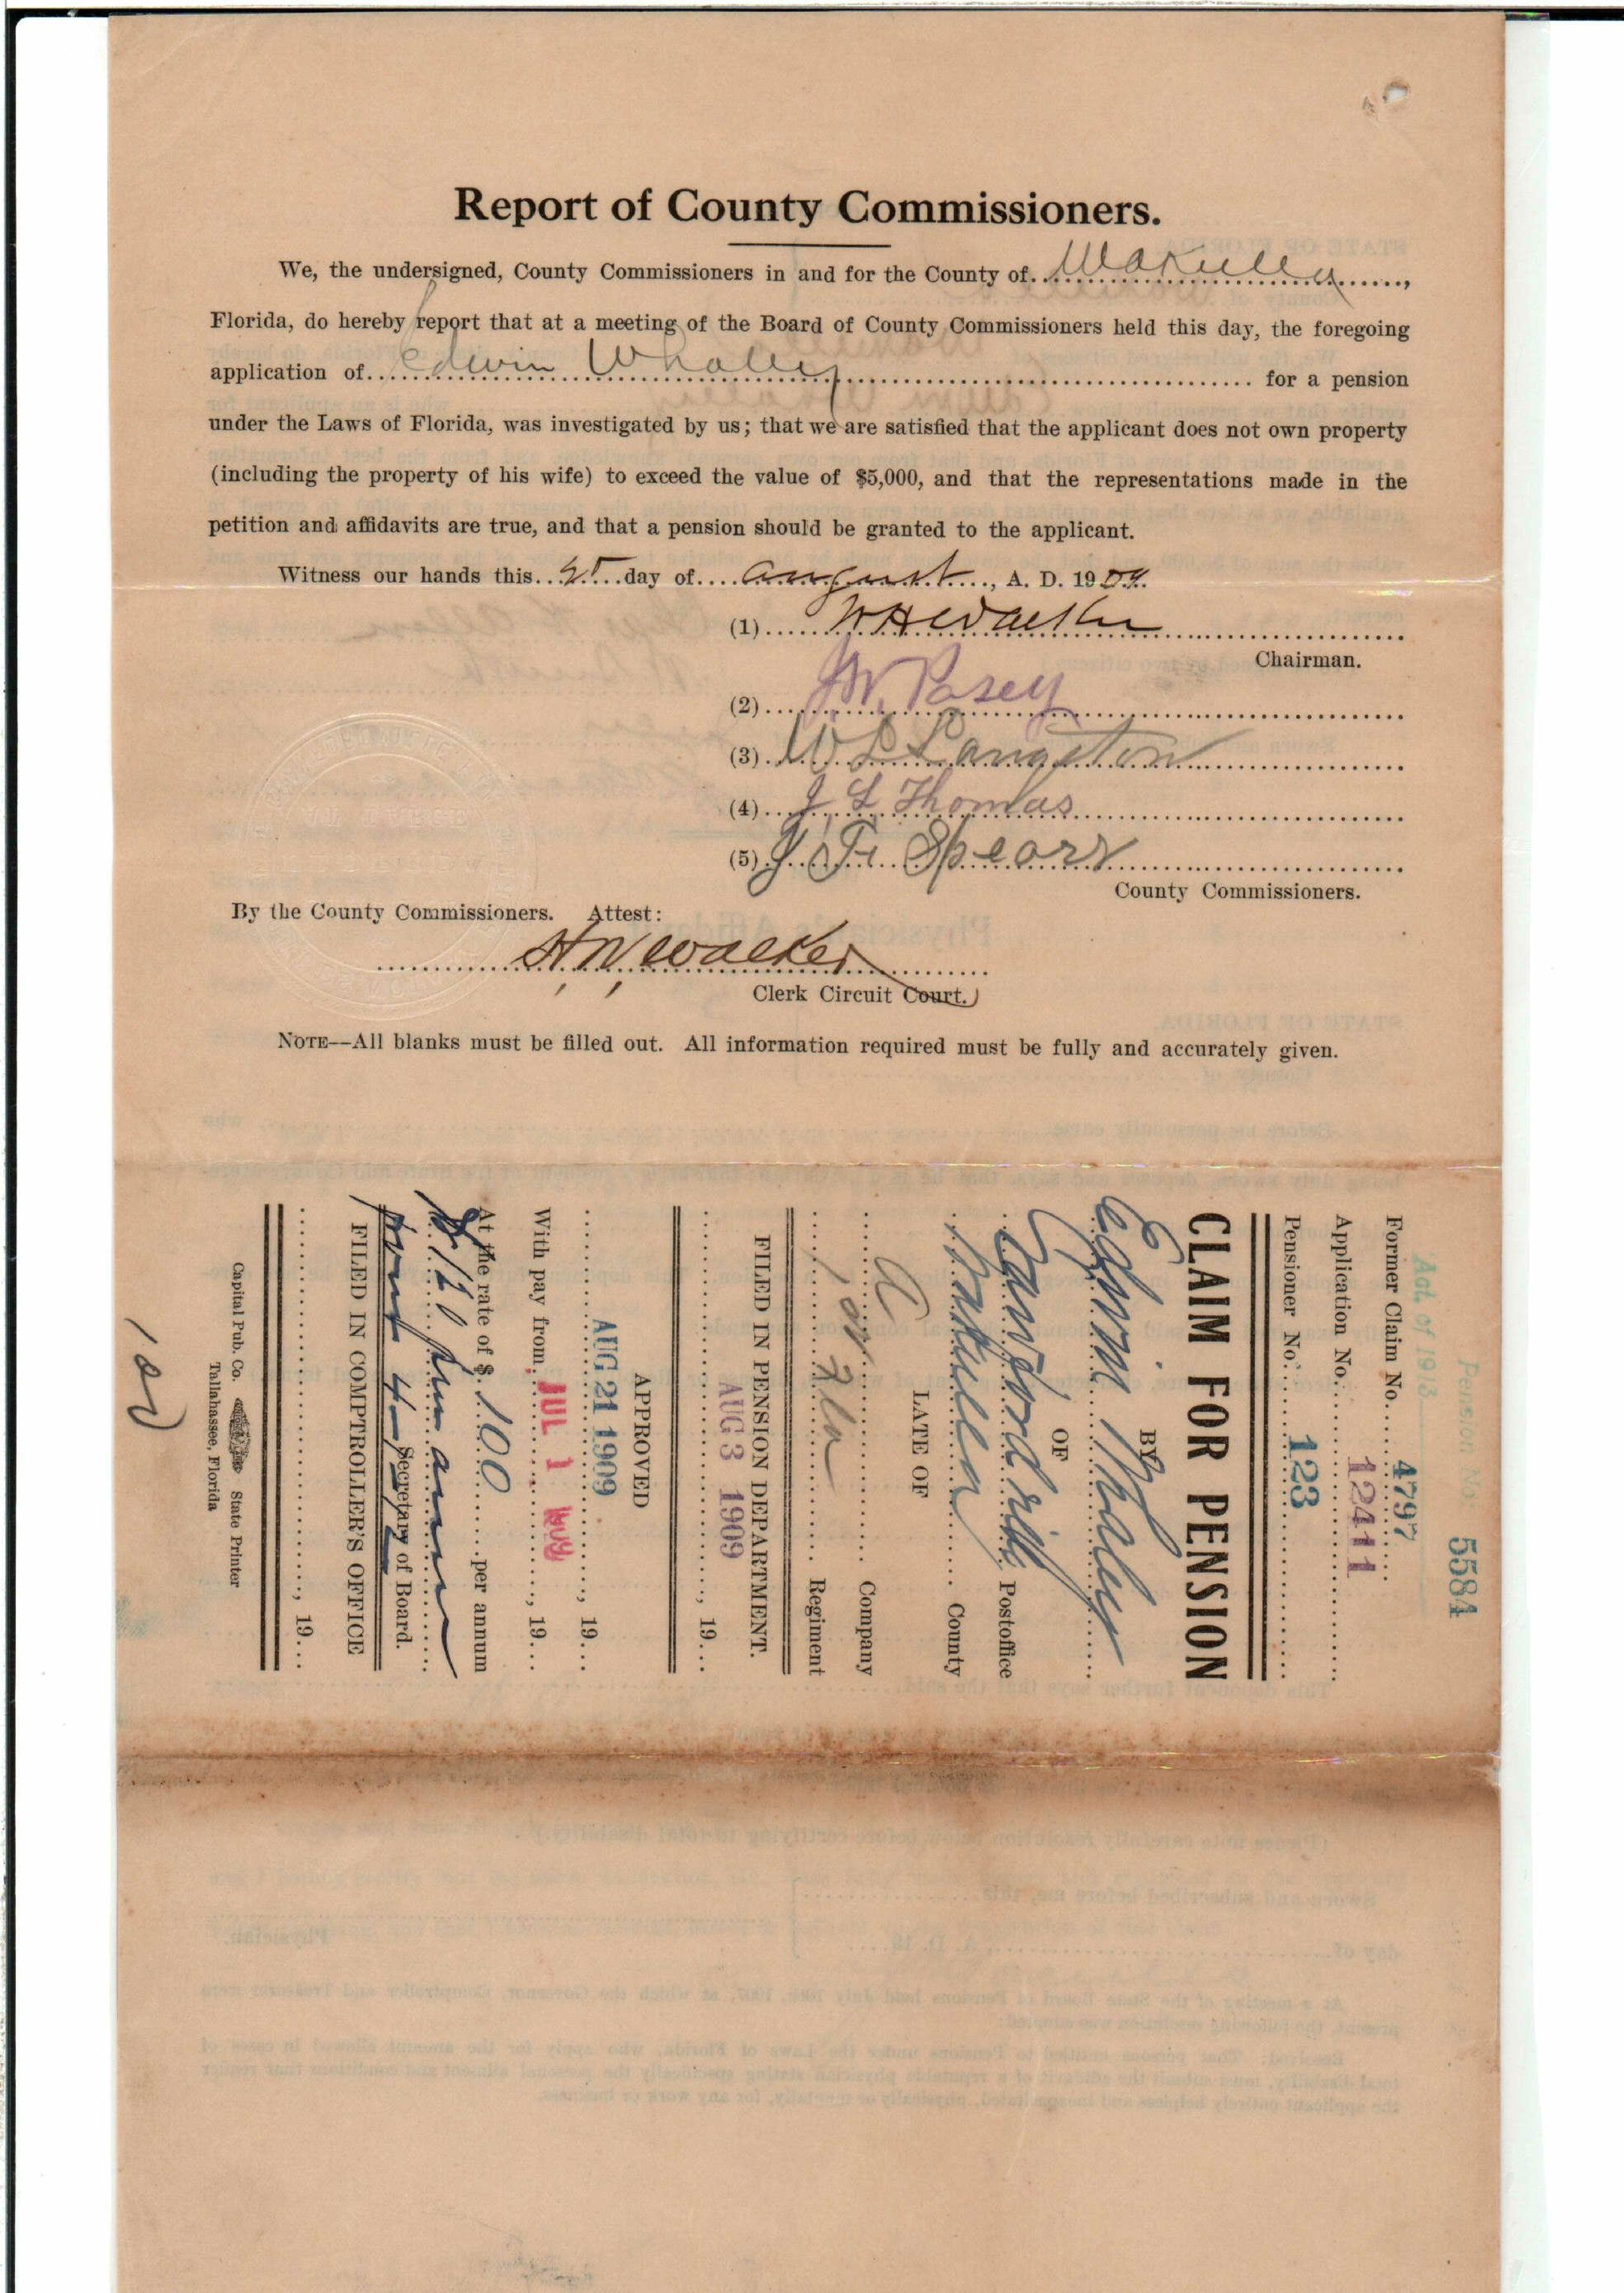 Report of County Commissioners.
We, the undersigned, County Commissioners in and for the County of Wakulla,
Florida, do hereby report that at a meeting of the Board of County Commissioners held this day, the foregoing
application of Edwin Whaley for a pension
under the Laws of Florida, was investigated by us; that we are satisfied that the applicant does not own property
(including the property of his wife) to exceed the value of $5,000, and that the representations made in the
petition and affidavits are true, and that a pension should be granted to the applicant.
Witness our hands this day of August, A. D. 1909.
(1) W H Walker
Chairman.
(2) J W. Posey
(3) W L Langston
(4) J L Thomas
(5) J. F. Spears
County Commissioners.
By the County Commissioners. Attest:
H N Walker
Clerk Circuit Court.
NOTE—All blanks must be filled out. All information required must be fully and accurately given.
5584
Act of 1913 Pension No.
Former Claim No. 4797
Application No. 12411
Pensioner No. 123
CLAIM FOR PENSION
BY
Edwin Whaley
OF
Crawfordville Postoffice
Wakulla County
LATE OF
Company
1st Fla Regiment
FILED IN PENSION DEPARTMENT.
AUG 3 1909, 19
APPROVED
AUG 21 1909, 19
With pay from JUL 1 1909, 19
At the rate of $ 100 per annum
Secretary of Board.
FILED IN COMPTROLLER'S OFFICE
, 19
Capital Pub. Co. State Printer
Tallahassee, Florida